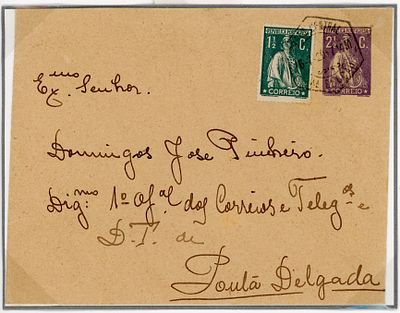 REPUBLICA PORTUGUESA
1½ C.
CORREIO
2½ C.
CORREIO
Exmo Senhor.
Domingos Jose Pinheiro.
Digmo 1º Ofal dos Correios e Telegos e
D.T. de
Ponta Delgada